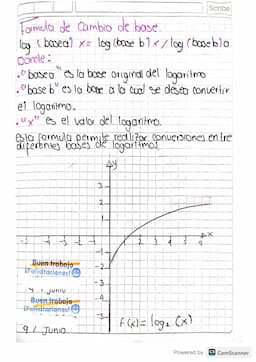 Scribe
Formula de Cambio de base.
log (base a) x = log (base b) x / log (base b) a
Donde:
• "base a" es la base original del logaritmo
• "base b" es la base a la cual se desea convertir
el logaritmo.
• "x" es el valor del logaritmo.
Esta formula permite realizar conversiones entre
diferentes bases de logaritmos
Buen trabajo
¡Felicitaciones!
9 / Junio
Buen trabajo
¡Felicitaciones!
9 / Junio
F(x) = log₂ (x)
Powered by CamScanner